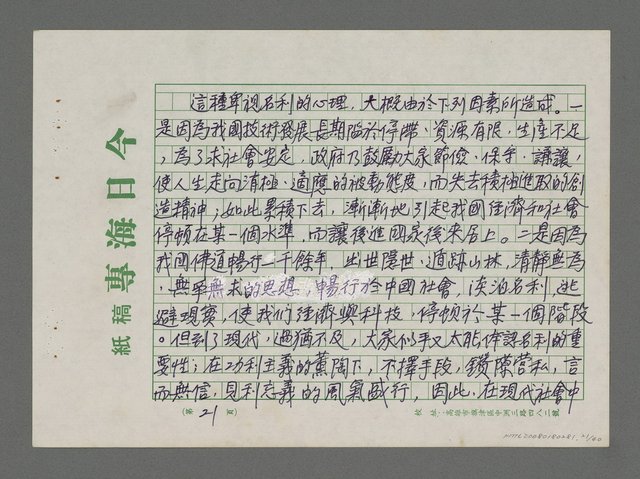 今日海專
稿紙
這種卑視名利的心理，大概由於下列因素所造成。一
是因為我國技術發展長期陷於停滯、資源有限，生產不足
，為了求社會安定，政府乃鼓勵大家節儉、保守、謙讓，
使人生走向消極、適應的被動態度，而失去積極進取的創
造精神；如此累積下去，漸漸地引起我國經濟和社會
停頓在某一個水準，而讓後進國家後來居上。二是因為
我國佛道暢行一千餘年，出世隱世、遁跡山林，清靜無為
、無爭無求的思想，暢行於中國社會，淡泊名利，逃
避現實，使我們經濟與科技，停頓於某一個階段
。但到了現代，過猶不及，大家似乎又太能体認名利的重
要性；在功利主義的薰陶下，不擇手段，鑽隙營私，言
而無信，見利忘義的風氣盛行，因此，在現代社會中
（第21頁）
校址：高雄市旗津區中洲三路四八二號
NMTL20080180281. 21/40